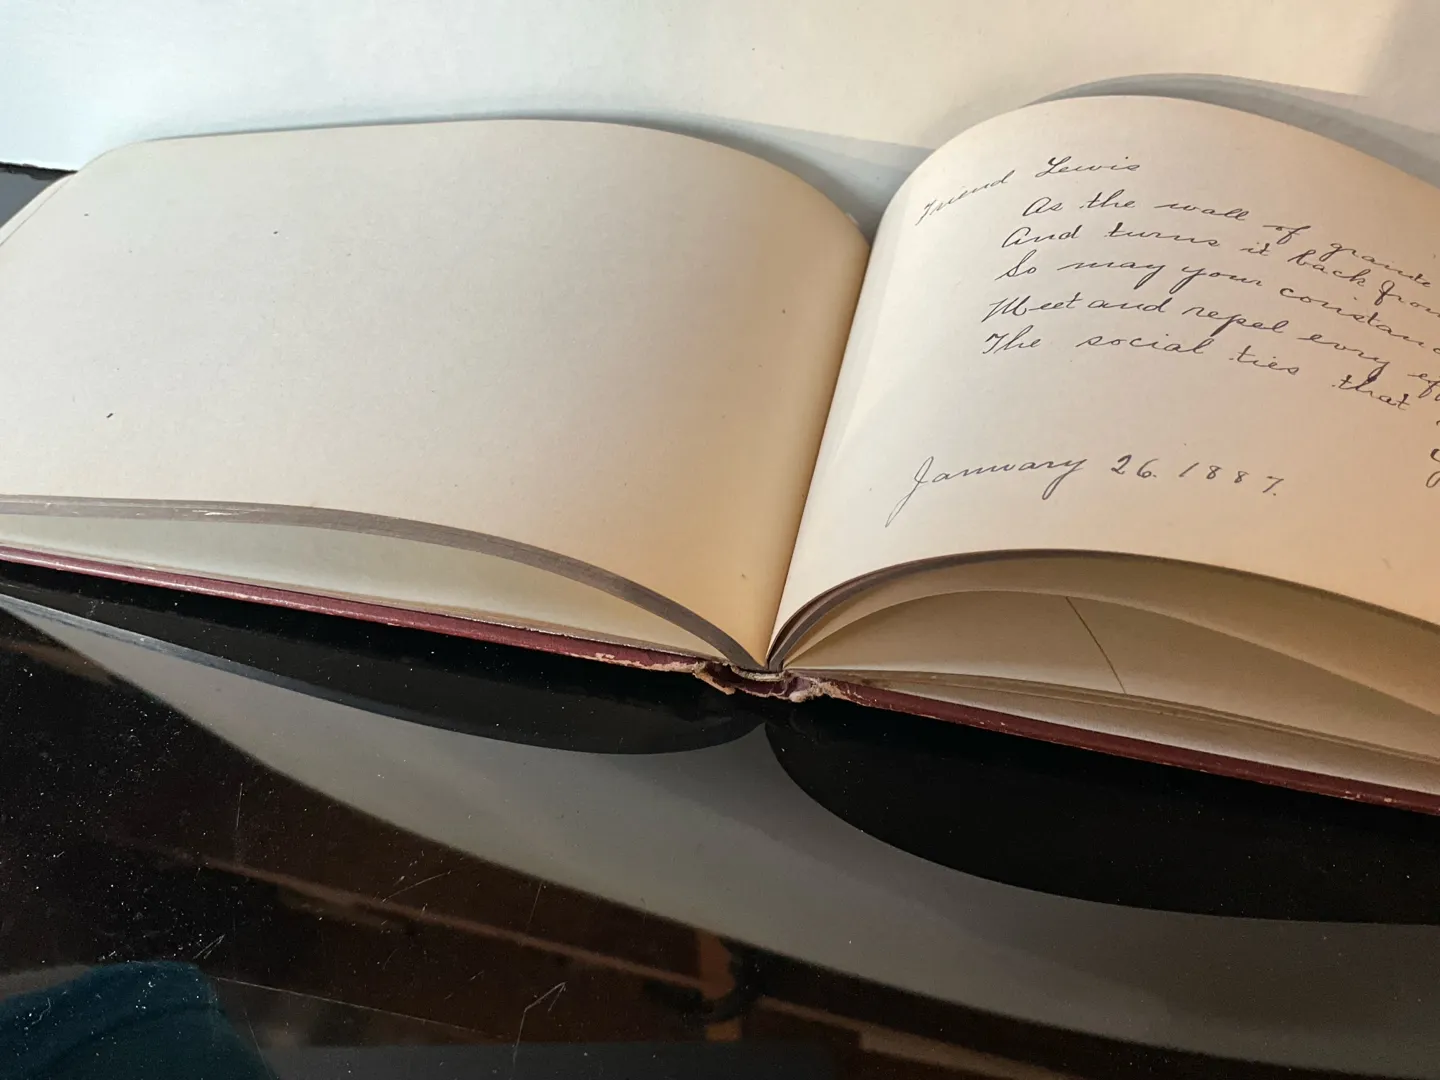 Friend Lewis
As the wall of granite
And turns it back from
So may your
Meet and repel evry
The social ties that
January 26. 1887.